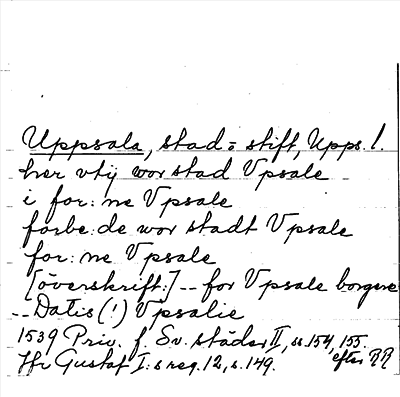 Uppsala, stad o stift, Upps. l.
her vtij wor stad Vpsale
i for: ne Vpsale
forbe: de wor stadt Vpsale
for: ne Vpsale
[överskrift:] -- for Vpsale borgere
-- Datis (!) Vpsalie
1539 Priv. f. Sv. städer II, ss. 154, 155.
Jfr Gustaf I:s reg. 12, s. 149. efter RR